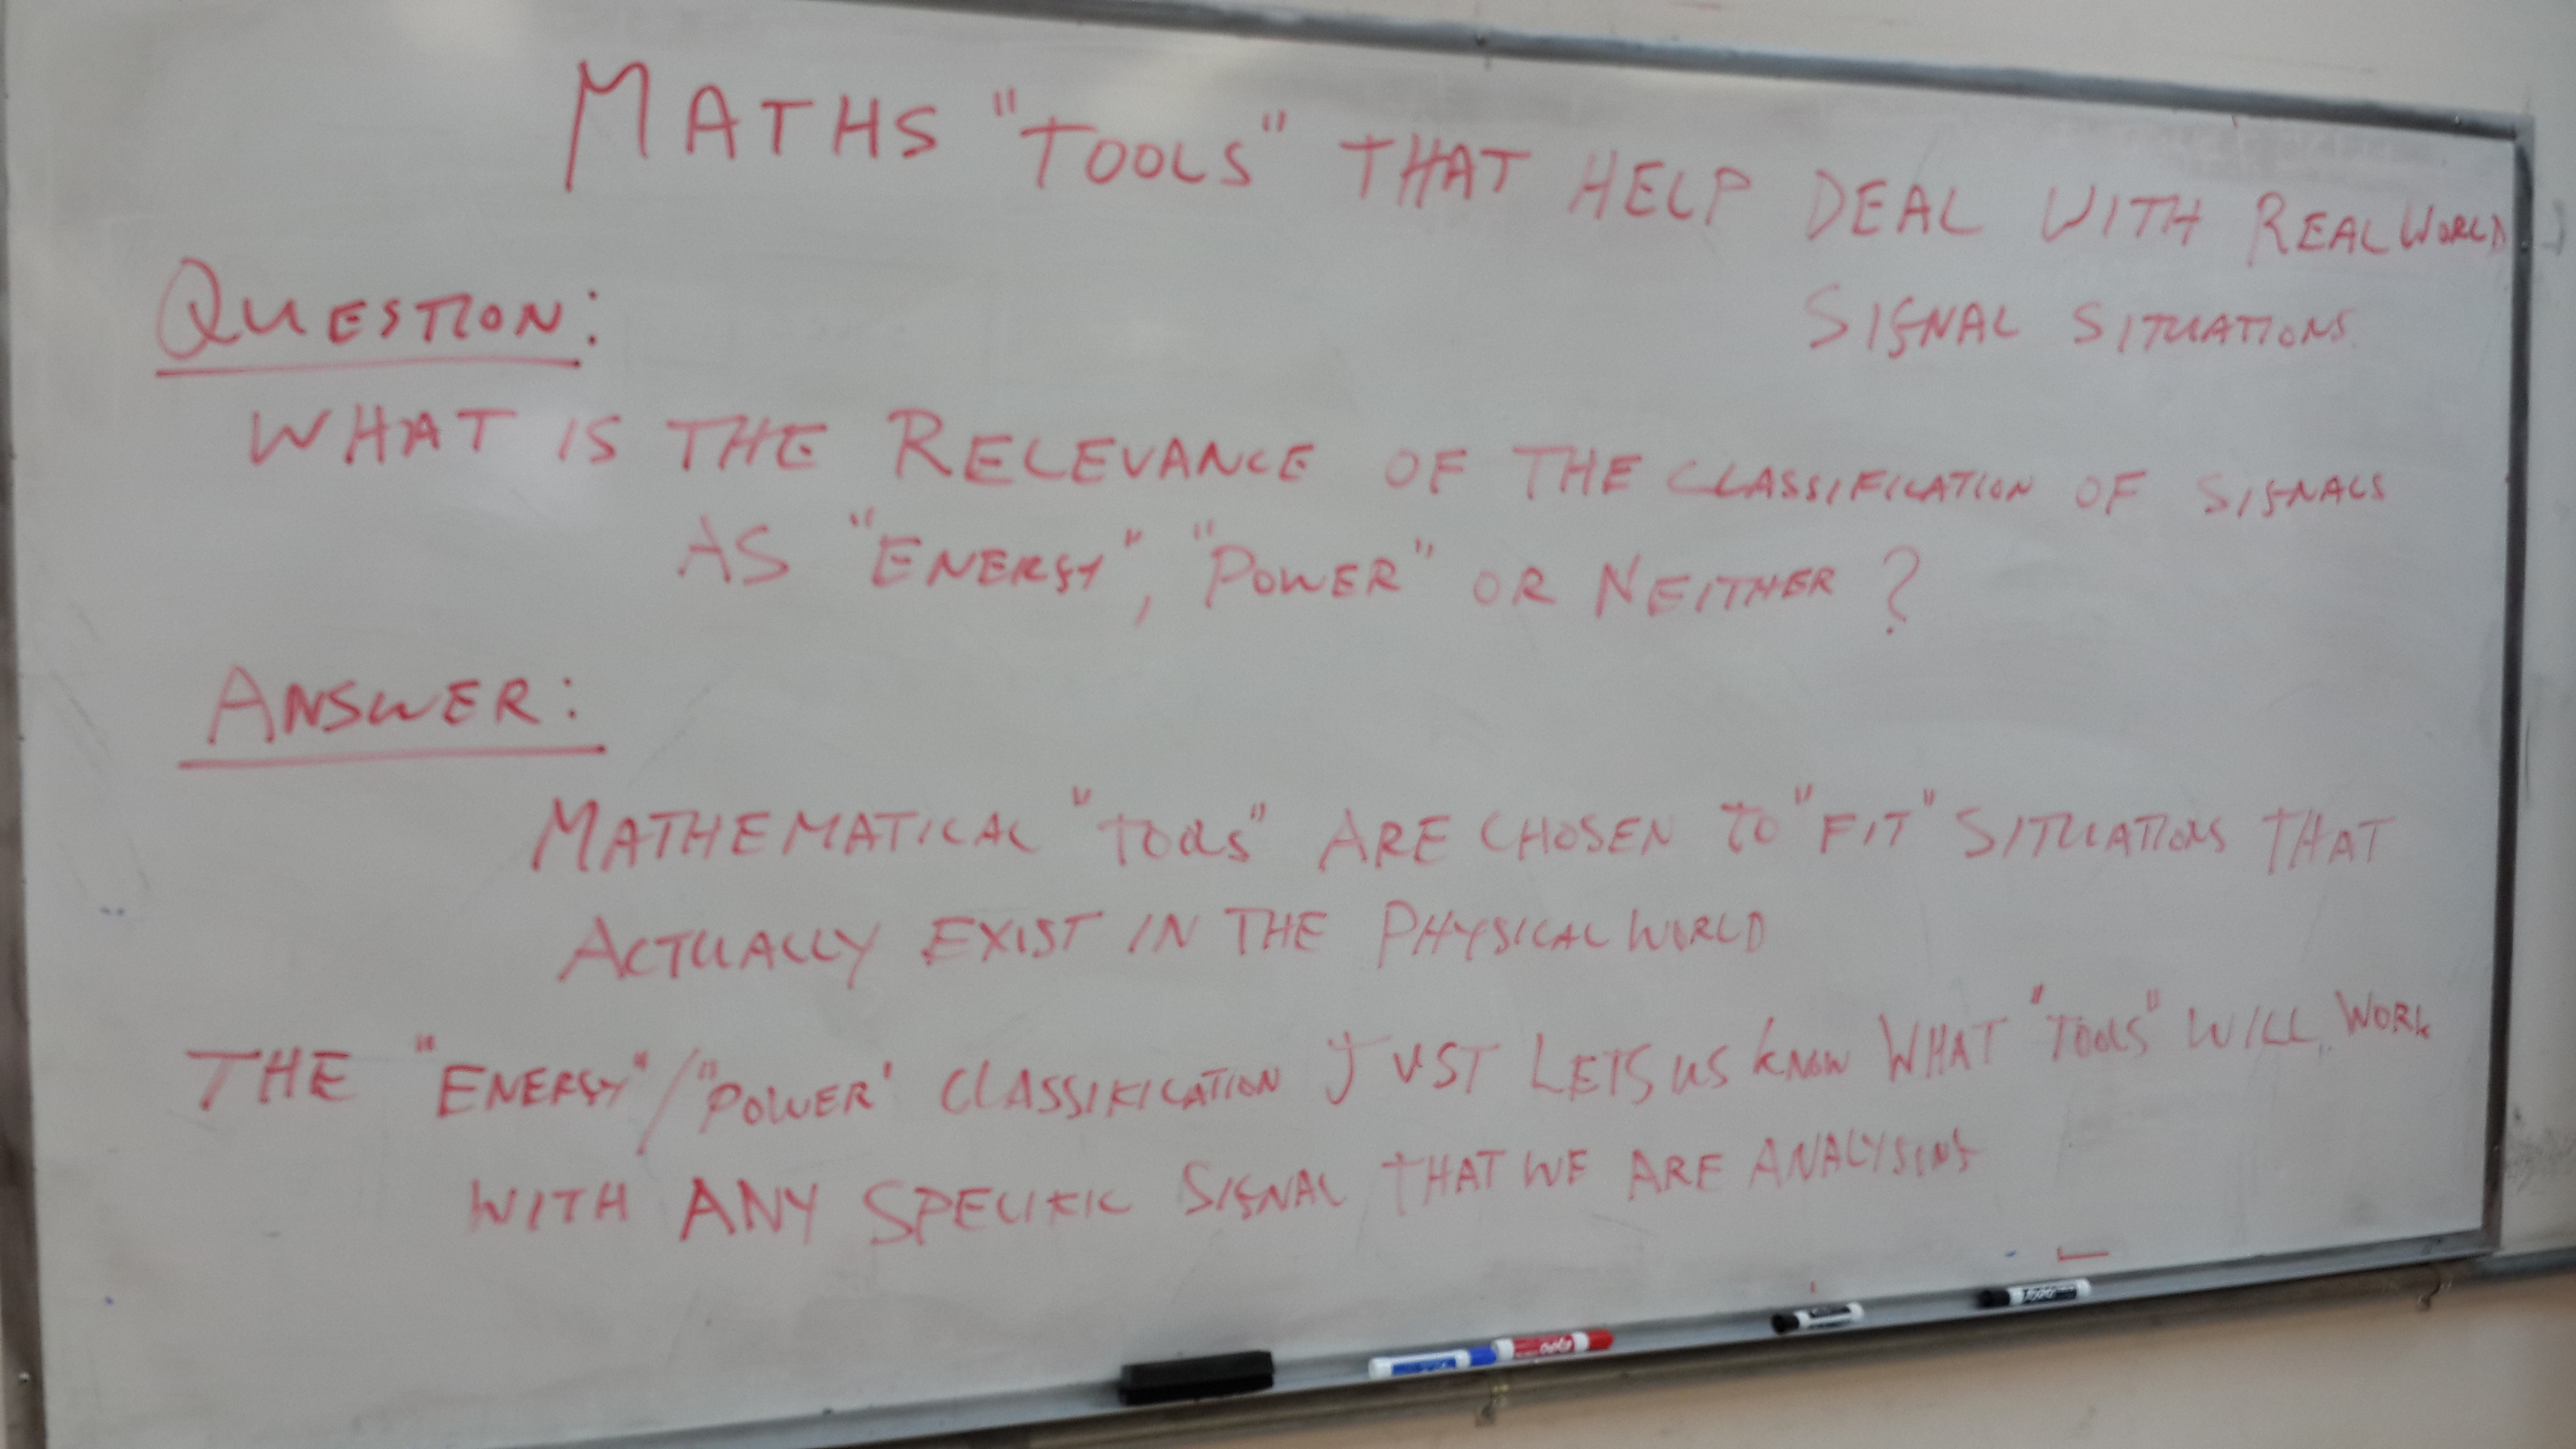 MATHS "TOOLS" THAT HELP DEAL WITH REAL WORLD
SIGNAL SITUATIONS.
QUESTION:
WHAT IS THE RELEVANCE OF THE CLASSIFICATION OF SIGNALS
AS "ENERGY", "POWER" OR NEITHER?
ANSWER:
MATHEMATICAL "TOOLS" ARE CHOSEN TO "FIT" SITUATIONS THAT
ACTUALLY EXIST IN THE PHYSICAL WORLD
THE "ENERGY"/"POWER' CLASSIFICATION JUST LETS US KNOW WHAT "TOOLS" WILL WORK
WITH ANY SPECIFIC SIGNAL THAT WE ARE ANALYSING